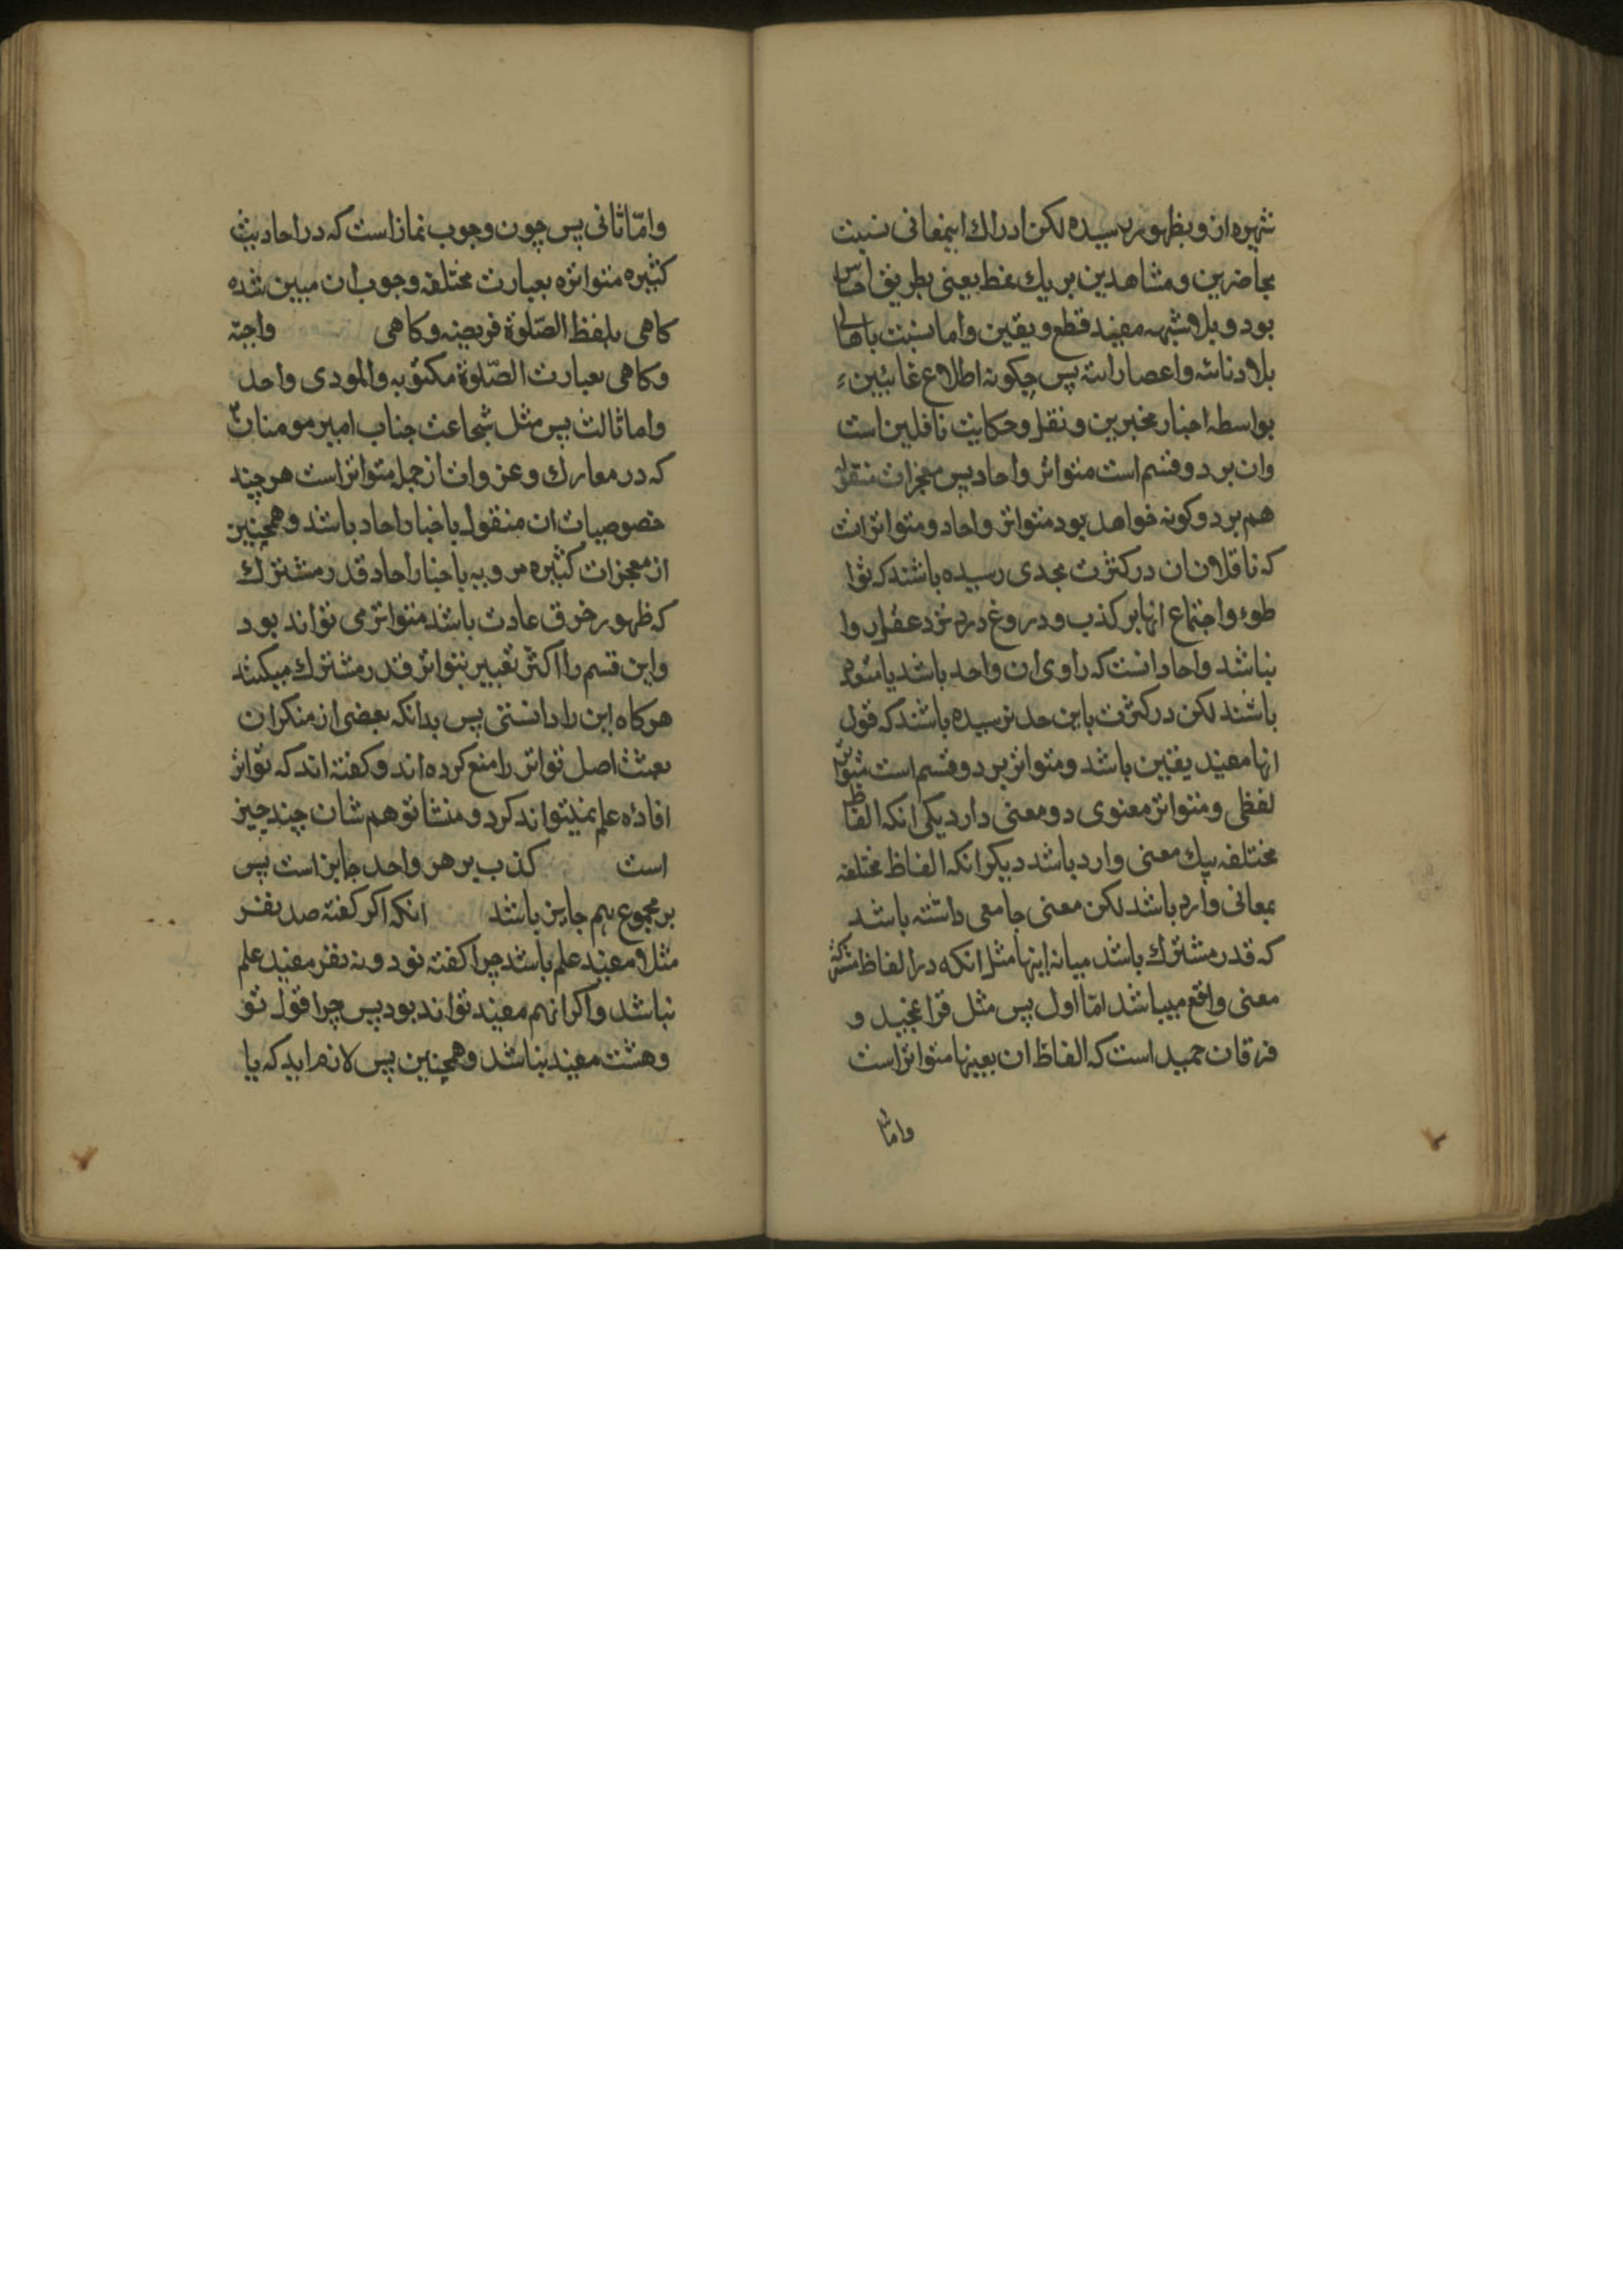 شهره ازو بظهور رسیده لکن ادراك اینمعانی نسبت
بحاضرین و مشاهدین بر یك نمط یعنی بطریق احساس
بود و بلا شبهه مفید قطع و یقین و اما نسبت باهالی
بلاد نائیه و اعصار اتیه پس چکونه اطلاع غائبین
بواسطه اخبار مخبرین و نقل و حکایت ناقلین است
وان بر دو قسم است متواتر و احاد پس معجزات منقوله
هم بر دو کونه خواهد بود متواتر و احاد و متواتر انست
که ناقلان ان در کثرت بحدی رسیده باشند که توا
طوء و اجتماع انها بر کذب و دروغ نزد عقل روا
نباشد و احاد انست که راوی ان واحد باشد یا متعدد
باشند لکن در کثرت باین حد نرسیده باشند که قول
انها مفید یقین باشد و متواتر بر دو قسم است متواتر
لفظی و متواتر معنوی دو معنی دارد یکی انکه الفاظ
مختلفه بیك معنی وارد باشد دیکر انکه الفاظ مختلفه
بمعانی وارد باشد لکن معنی جامعی داشته باشد
که قدر مشترك باشد میانه اینها مثل انکه در الفاظ مشترکه
معنی واقع میباشد امّا اول پس مثل قران مجید و
فرقان حمید است که الفاظ ان بعینها متواتر است
واما
وامّا ثانی پس چون وجوب نماز است که در احادیث
کثیره متواتره بعبارت مختلفه وجوب ان مبین شده
کاهی بلفظ الصّلوة فریضه و کاهی واجبة
و کاهی بعبارت الصّلوة مکتوبه والمودی واحد
واما ثالث پس مثل شجاعت جناب امیر مومنان
که در معارك و غزوات از جمله متواتر است هر چند
خصوصیات ان منقول باخبار احاد باشد و همچنین
از معجزات کثیره مرویه باخبار احاد قدر مشترك
که ظهور خرق عادت باشد متواتر می تواند بود
و این قسم را اکثر تعبیر بتواتر قدر مشترك میکنند
هرکاه این را دانستی پس بدانکه بعضی از منکران
بعثت اصل تواتر را منع کرده اند و کفته اند که تواتر
افاده علم نمیتواند کرد و منشا توهم شان چند چیز
است کذب بر هر واحد جایز است پس
بر مجموع هم جایز باشد انکه اکر کفته صد نفر
مثلا مفید علم باشد چرا کفته نود و نه نفر مفید علم
نباشد و اکر انهم مفید تواند بود پس چرا قول نو
و هشت مفید نباشد و همچنین پس لازم اید که یا